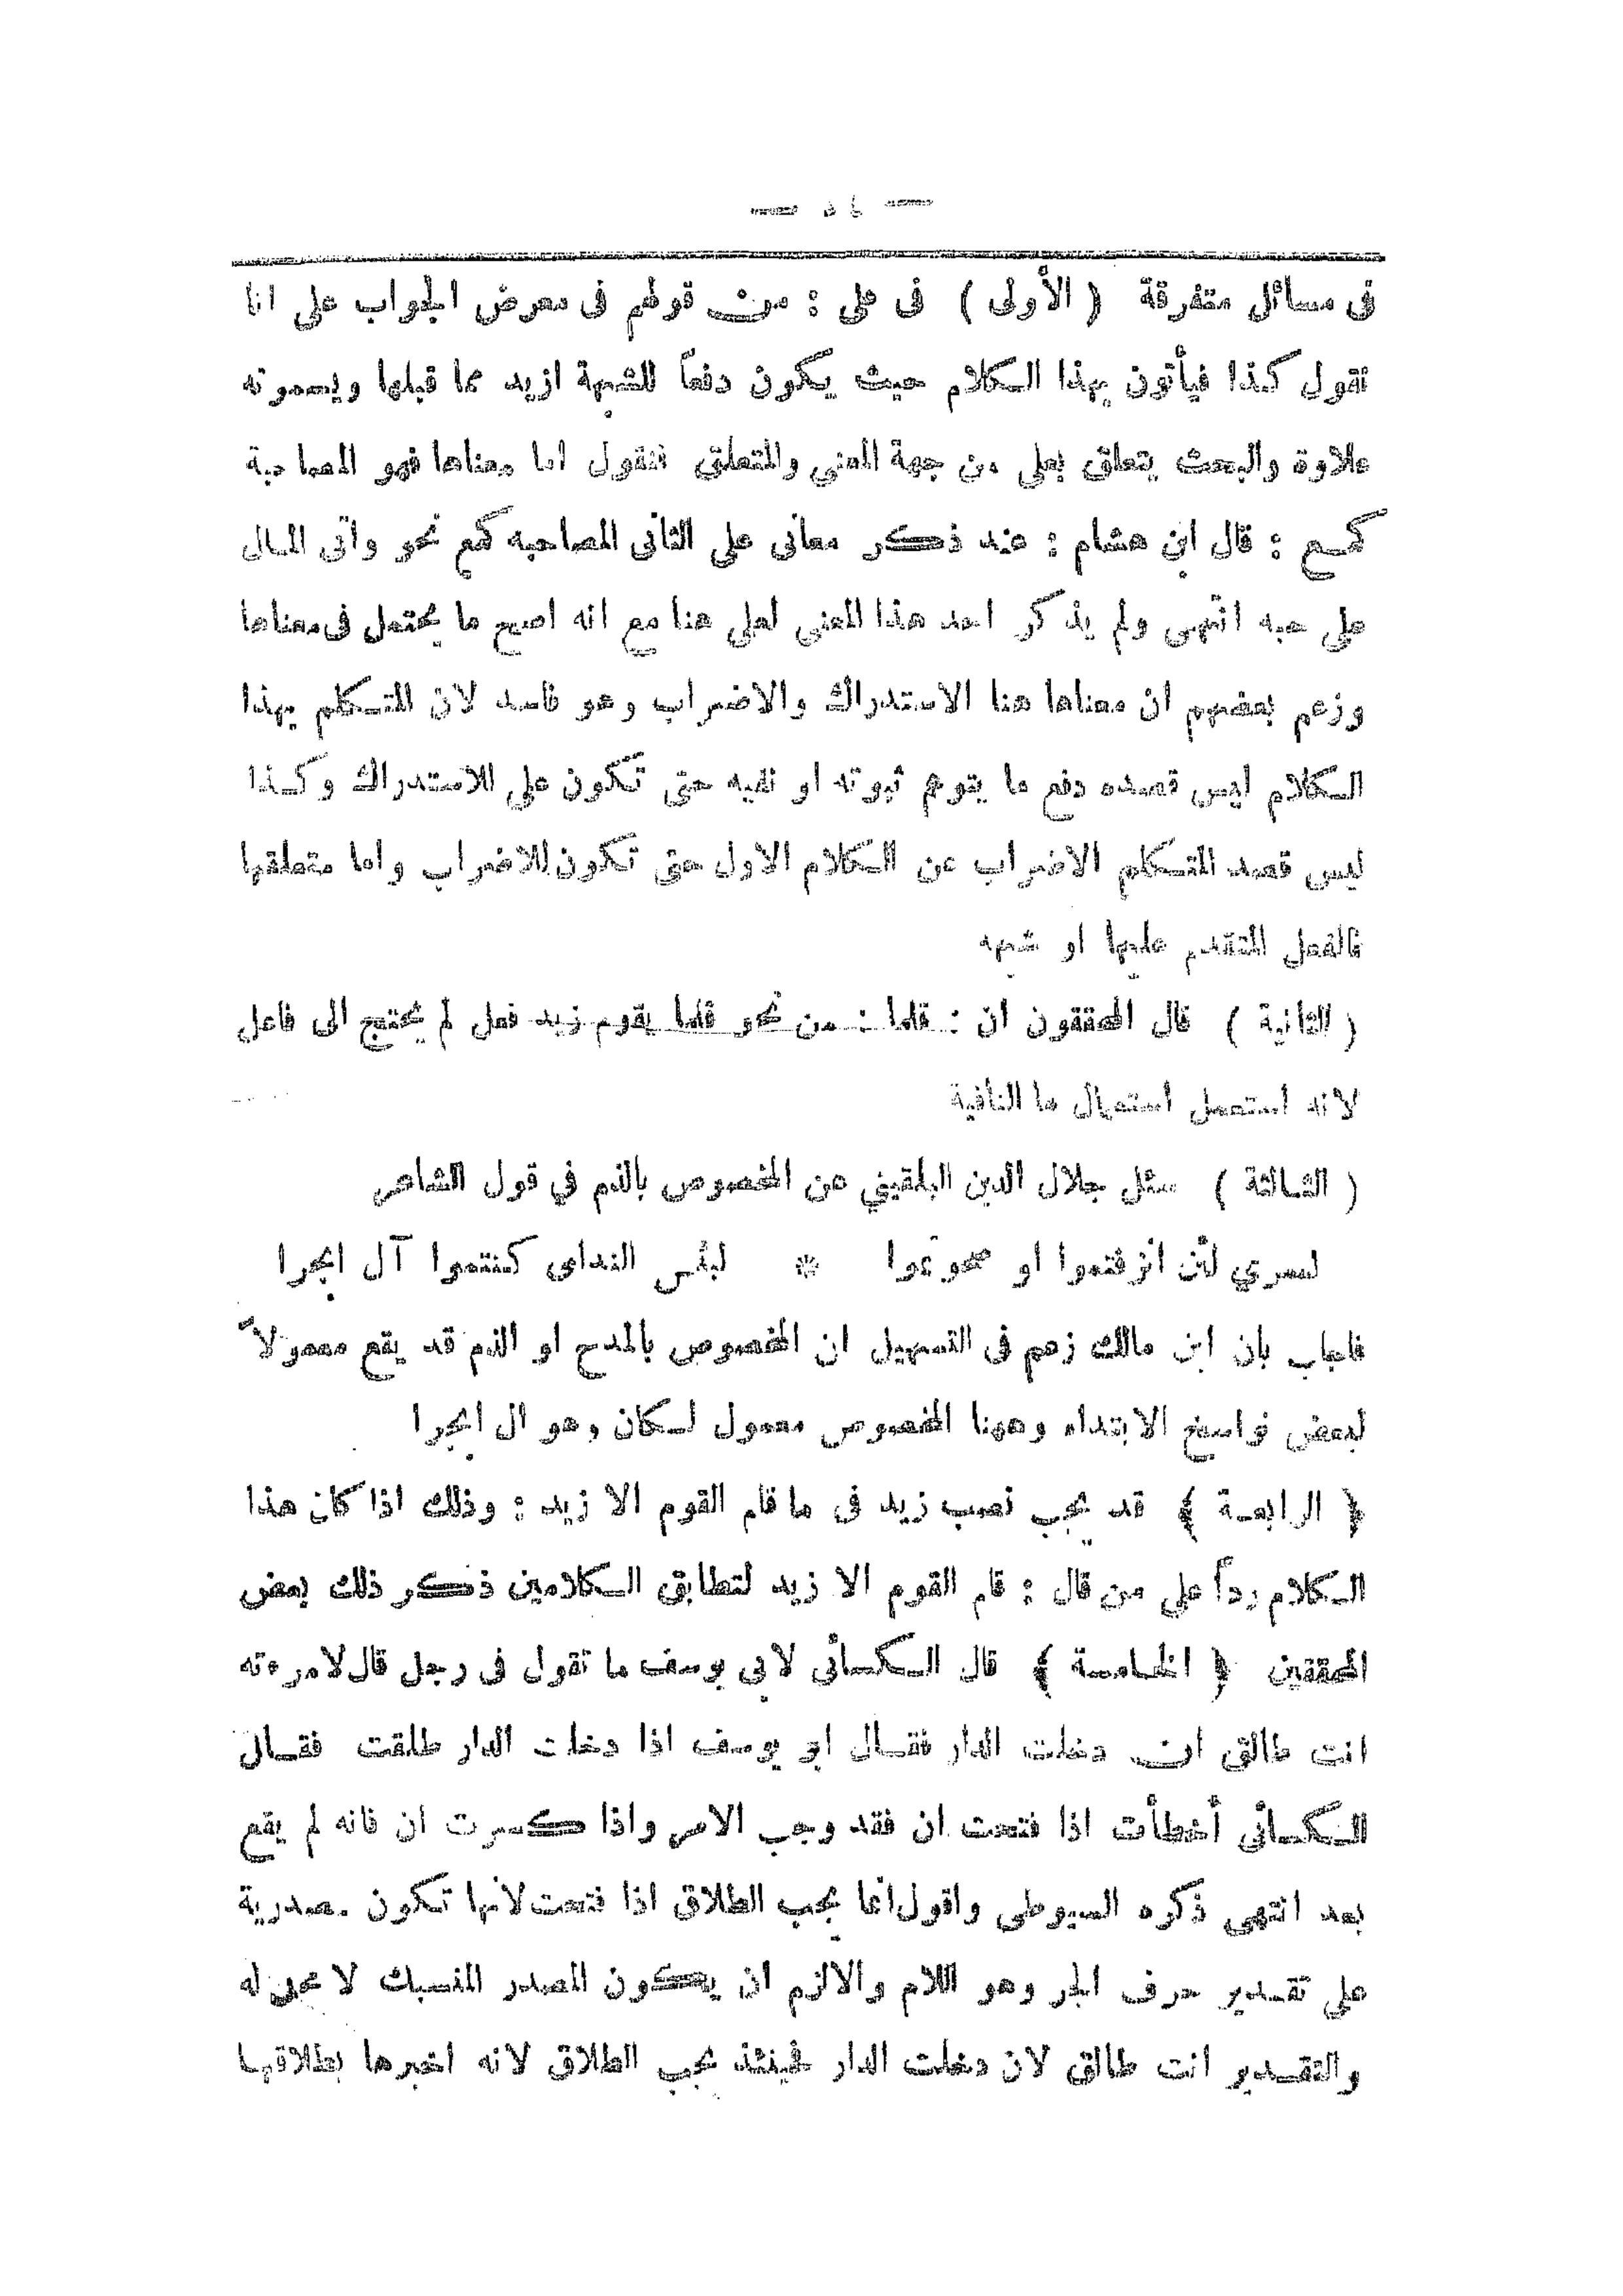 فى مسائل متفرقة ( الأولى ) فى على : من قولهم فى معرض الجواب على انا
نقول كذا فيأتون بهذا الكلام حيث يكون دفعاً للشبهة ازيد مما قبلها ويسمونه
علاوة والبحث يتعلق بعلى من جهة المعنى والمتعلق فنقول اما معناها فهو المصاحبة
كمع : قال ابن هشام : عند ذكر معانى على الثانى المصاحبه كمع نحو واتى المال
على حبه انتهى ولم يذكر احد هذا المعنى لعلى هنا مع انه اصح ما يحتمل فى معناها
وزعم بعضهم ان معناها هنا الاستدراك والاضراب وهو فاسد لان المتكلم بهذا
الكلام ليس قصده دفع ما يتوهم ثبوته او نفيه حتى تكون على للاستدراك وكذا
ليس قصد المتكلم الاضراب عن الكلام الاول حتى تكون للاضراب واما متعلقها
فالفعل المتقدم عليها او شبهه
( الثانية ) قال المحققون ان : قلما : من نحو قلما يقوم زيد فعل لم يحتج الى فاعل
لانه استعمل استعمال ما النافية
( الثالثة ) سئل جلال الدين البلقيني عن المخصوص بالذم في قول الشاعر
لعمري لئن انزفتموا او صحوتموا * لبئس الندامى كنتموا آل ابجرا
فاجاب بان ابن مالك زعم فى التسهيل ان المخصوص بالمدح او الذم قد يقع معمولاً
لبعض نواسخ الابتداء وههنا المخصوص معمول لكان وهو ال ابجرا
﴿ الرابعة ﴾ قد يجب نصب زيد فى ما قام القوم الا زيد : وذلك اذا كان هذا
الكلام رداً على من قال : قام القوم الا زيد لتطابق الكلامين ذكر ذلك بعض
المحققين ﴿ الخامسة ﴾ قال الكسائى لابى يوسف ما تقول فى رجل قال لامرءته
انت طالق ان دخلت الدار فقال ابو يوسف اذا دخلت الدار طلقت فقال
الكسائى أخطأت اذا فتحت ان فقد وجب الامر واذا كسرت ان فانه لم يقع
بعد انتهى ذكره السيوطى واقول انما يجب الطلاق اذا فتحت لانها تكون مصدرية
على تقدير حرف الجر وهو اللام والالزم ان يكون المصدر المنسبك لا محل له
والتقدير انت طالق لان دخلت الدار فحينئذ يجب الطلاق لانه اخبرها بطلاقها